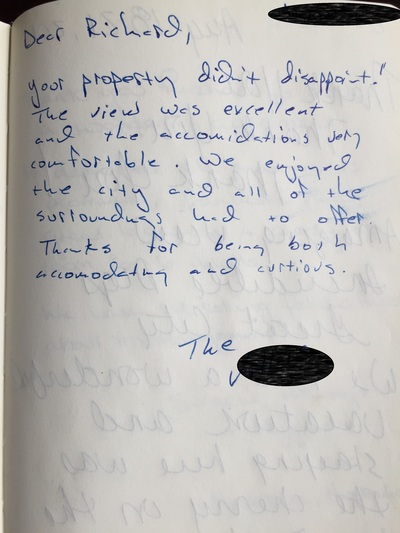 Dear Richard,
your property didn't disappoint!
The view was excellent
and the accomidations very
comfortable. We enjoyed
the city and all of the
surroundings had to offer
Thanks for being both
accomodating and curtious.
The